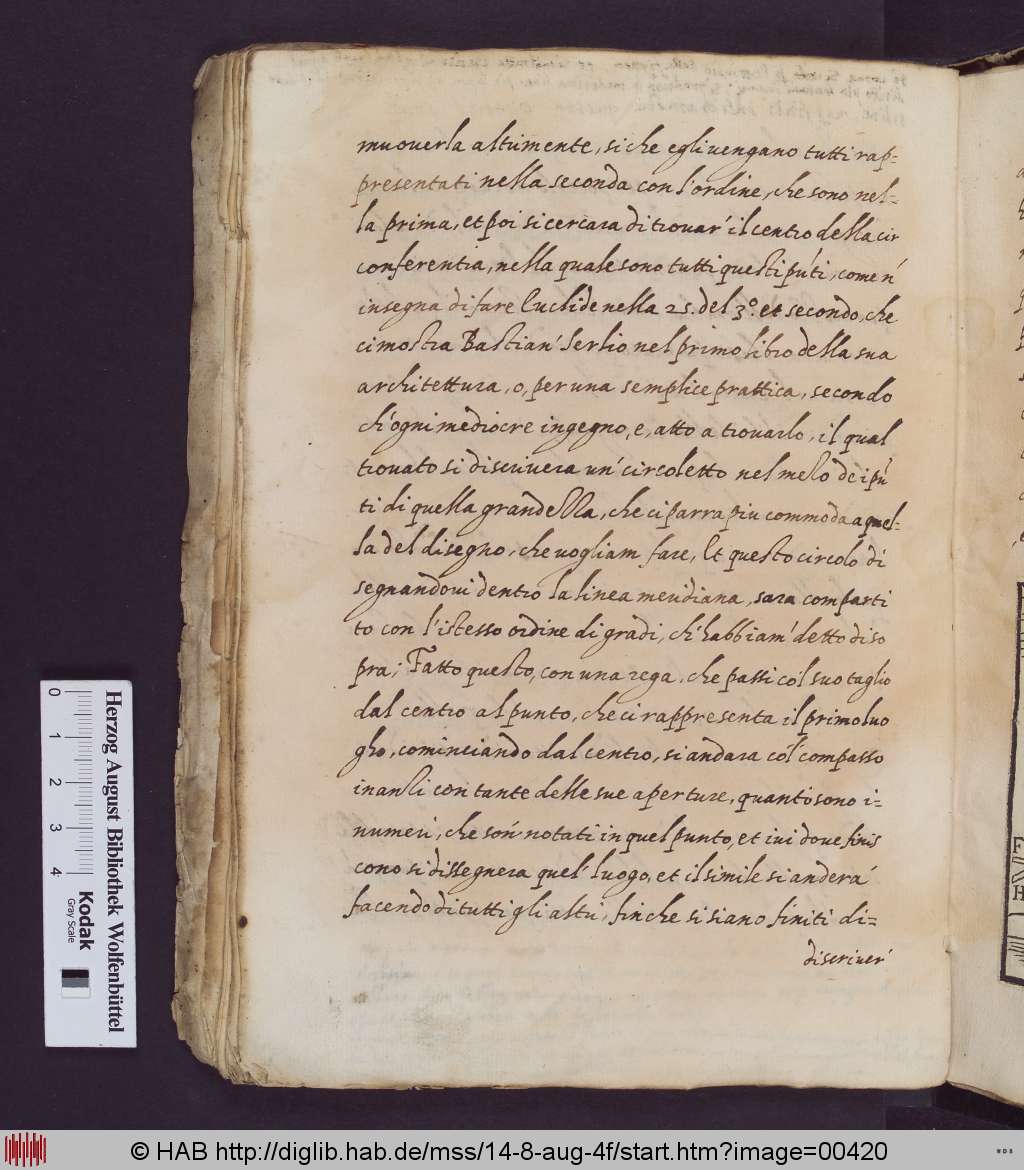 muouerla altrimente, si che egli uengano tutti rap=
presentati nella seconda con l'ordine, che sono nel=
la prima, et poi si cercara di trouar' il centro della cir
conferentia, nella quale sono tutti questi pūti, come n'
insegna di fare Euclide nella 25. del 3.º et secondo, che
ci mostra Bastian' Serlio nel primo libro della sua
architettura, o, per una semplice prattica, secondo
ch'ogni mediocre ingegno, e, atto a trouarlo, il qual
trouato si discriuera un' circoletto nel mezo de i pū
ti di quella grandezza, che ci parra piu commoda a quel=
la del disegno, che uogliam fare, Et questo circolo di
segnandoui dentro la linea meridiana, sara comparti
to con l'istesso ordine di gradi, ch'habbiam' detto di so
pra; Fatto questo, con una rega, che passi col suo taglio
dal centro al punto, che ci rappresenta il primo luo
gho, cominciando dal centro, si andara col compasso
inanzi con tante delle sue aperture, quanto sono i=
numeri, che son' notati in quel punto, et iui doue finis
cono si dissegnera quel' luogo, et il simile si anderá
facendo di tutti gli altri, fin che si siano finiti di=
discriuer'
Herzog August Bibliothek Wolfenbüttel
0 1 2 3 4
Kodak
Gray Scale
© HAB http://diglib.hab.de/mss/14-8-aug-4f/start.htm?image=00420